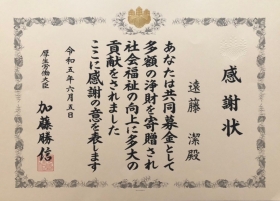 感謝状
遠藤 潔殿
あなたは共同募金として
多額の浄財を寄贈され
社会福祉の向上に多大の
貢献をされました
ここに感謝の意を表します
令和五年六月五日
厚生労働大臣
加藤勝信